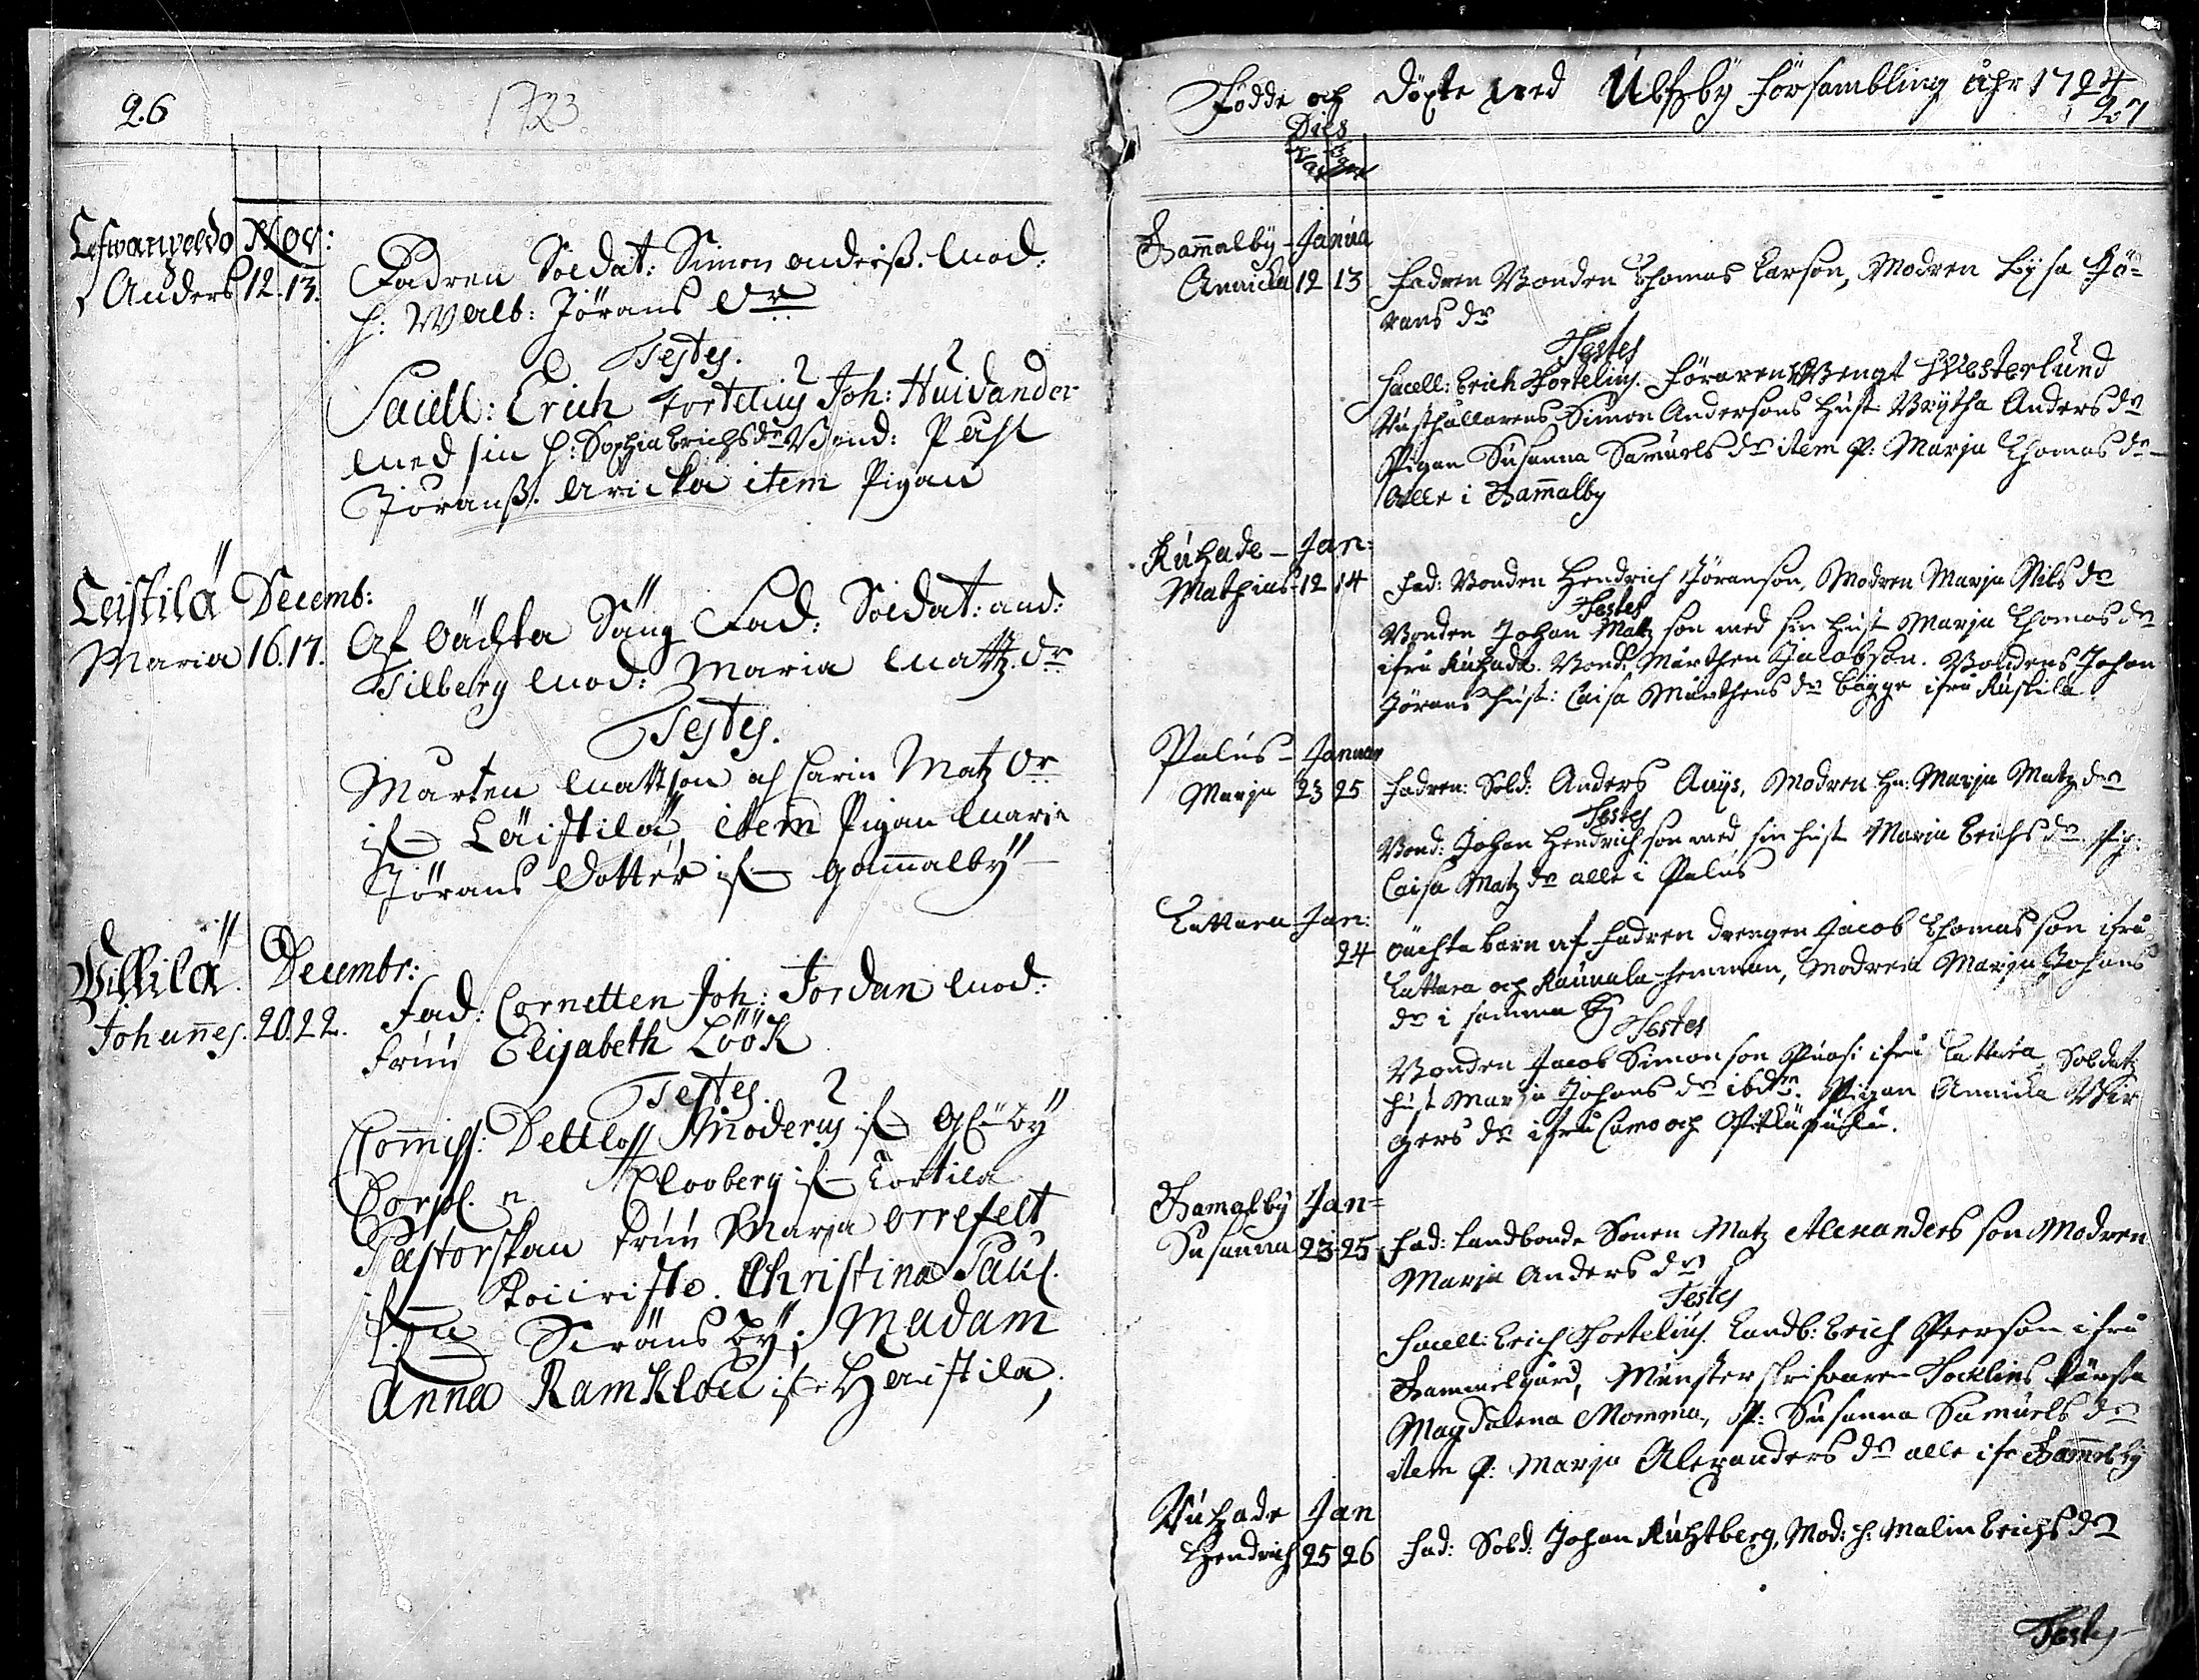 26
1723
Nov:
Anders 12. 13.
Fadren Soldat: Simon anderss. Mod:
h: Walb: Jörans dr
Testes.
Sacell: Erich Fortelius Joh: Huidander
med sin h: Sophia Erichs dr Bond:
Jöranss. item Pigan
Leistilä Decemb:
Maria 16. 17.
Af oächta Säng Fad: Soldat: and:
Tilberg Mod: Maria Mattz. dr
Testes.
Mårten Mattson och Carin Matz dr
if– Läistilä, item Pigan Maria
Jörans dotter if– gammalbÿ
Decembr:
Johannes. 20. 22.
Fad: Cornetten Joh: Jordan Mod:
fruu Elisabeth Löök
Testes.
Commiss: Dettloff Moderus if–
Corpl. n Clooberg if– Tortila
Pastorskan fruu Maria orrefelt
Christina Pauls.
bÿ; Madam
Anna Ramklou if– Haistila;
Födde och döpte wed Ulfzby försambling åhr 1724
27
Dies
Gammalbÿ – Janua
Annicka 12 13
Fadren Bonden Thomas Larson, Modren Lÿsa Jö-
rans dr
Testes
Sacell: Erich Fortelius. Föraren Bengt Westerlund
Rusthållarens Simon Andersons hust. Brÿtha Anders dr
Pigan Susanna Samuels dr item P: Marja Thomas dr
alle i Gammalby
Kuhade – Jan:
Mathias 12 14
Fad: Bonden Hendrich Jöranson, Modren Marja Nils dr
Testes
Bonden Johan Matz son med sin hust Marja Thomas dr
ifrå Kuhade. Bond: Mårthen Jacobson. Bondens Johan
Jörans hust: Caisa Mårthens dr bägge ifrå
Palus – Januar
Marja 23 25
Fadren: Sold: Anders Modren hu: Marja Matz dr
Testes
Bond: Johan Hendrich son med sin hust Maria Erichs dr Pig:
Caisa Matz dr alle i Palus
Lattara Jan:
24
oächta barn af Fadren drengen Jacob Thomas son ifrå
Lattara och hemman, Modren Marja Johans
dr i samma by
Testes
Bonden Jacob Simon son ifrå Lattara, Soldatz
hust Marja Johans dr ibdm. Pigan Annicka Bir
gers dr ifrå och
Gamalbÿ Jan=
Susanna 23 25
Fad: Landbonde Sonen Matz Alexanders son Modren
Marja Anders dr
Testes
Sacell: Erich Fortelius. Landb: Erich Peerson ifrå
Gammelgård, Mönsterskrifvaren kärsta
Magdalena Momma, P: Susanna Samuels dr
item P: Marja Alexanders dr alle ifr Gammelby
Kuhade Jan
Hendrich 25 26
Fad: Sold: Johan Kuhtberg, Mod: h: Malin Erichs dr
Testes